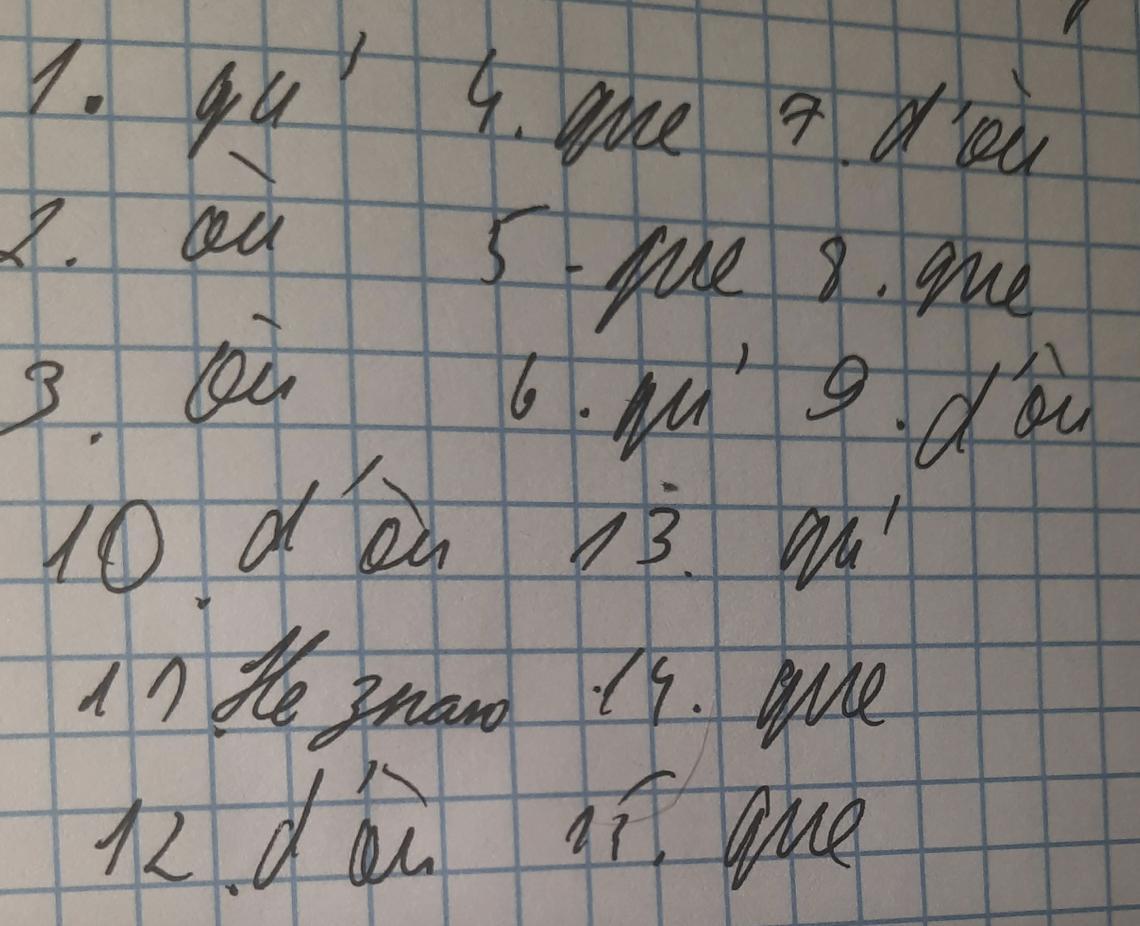 1. qu' 4. que 7. d'où
2. où 5 - que 8. que
3. où 6. qu' 9. d'où
10. d'où 13. qu'
11. Не знаю 14. que
12. d'où 15. que